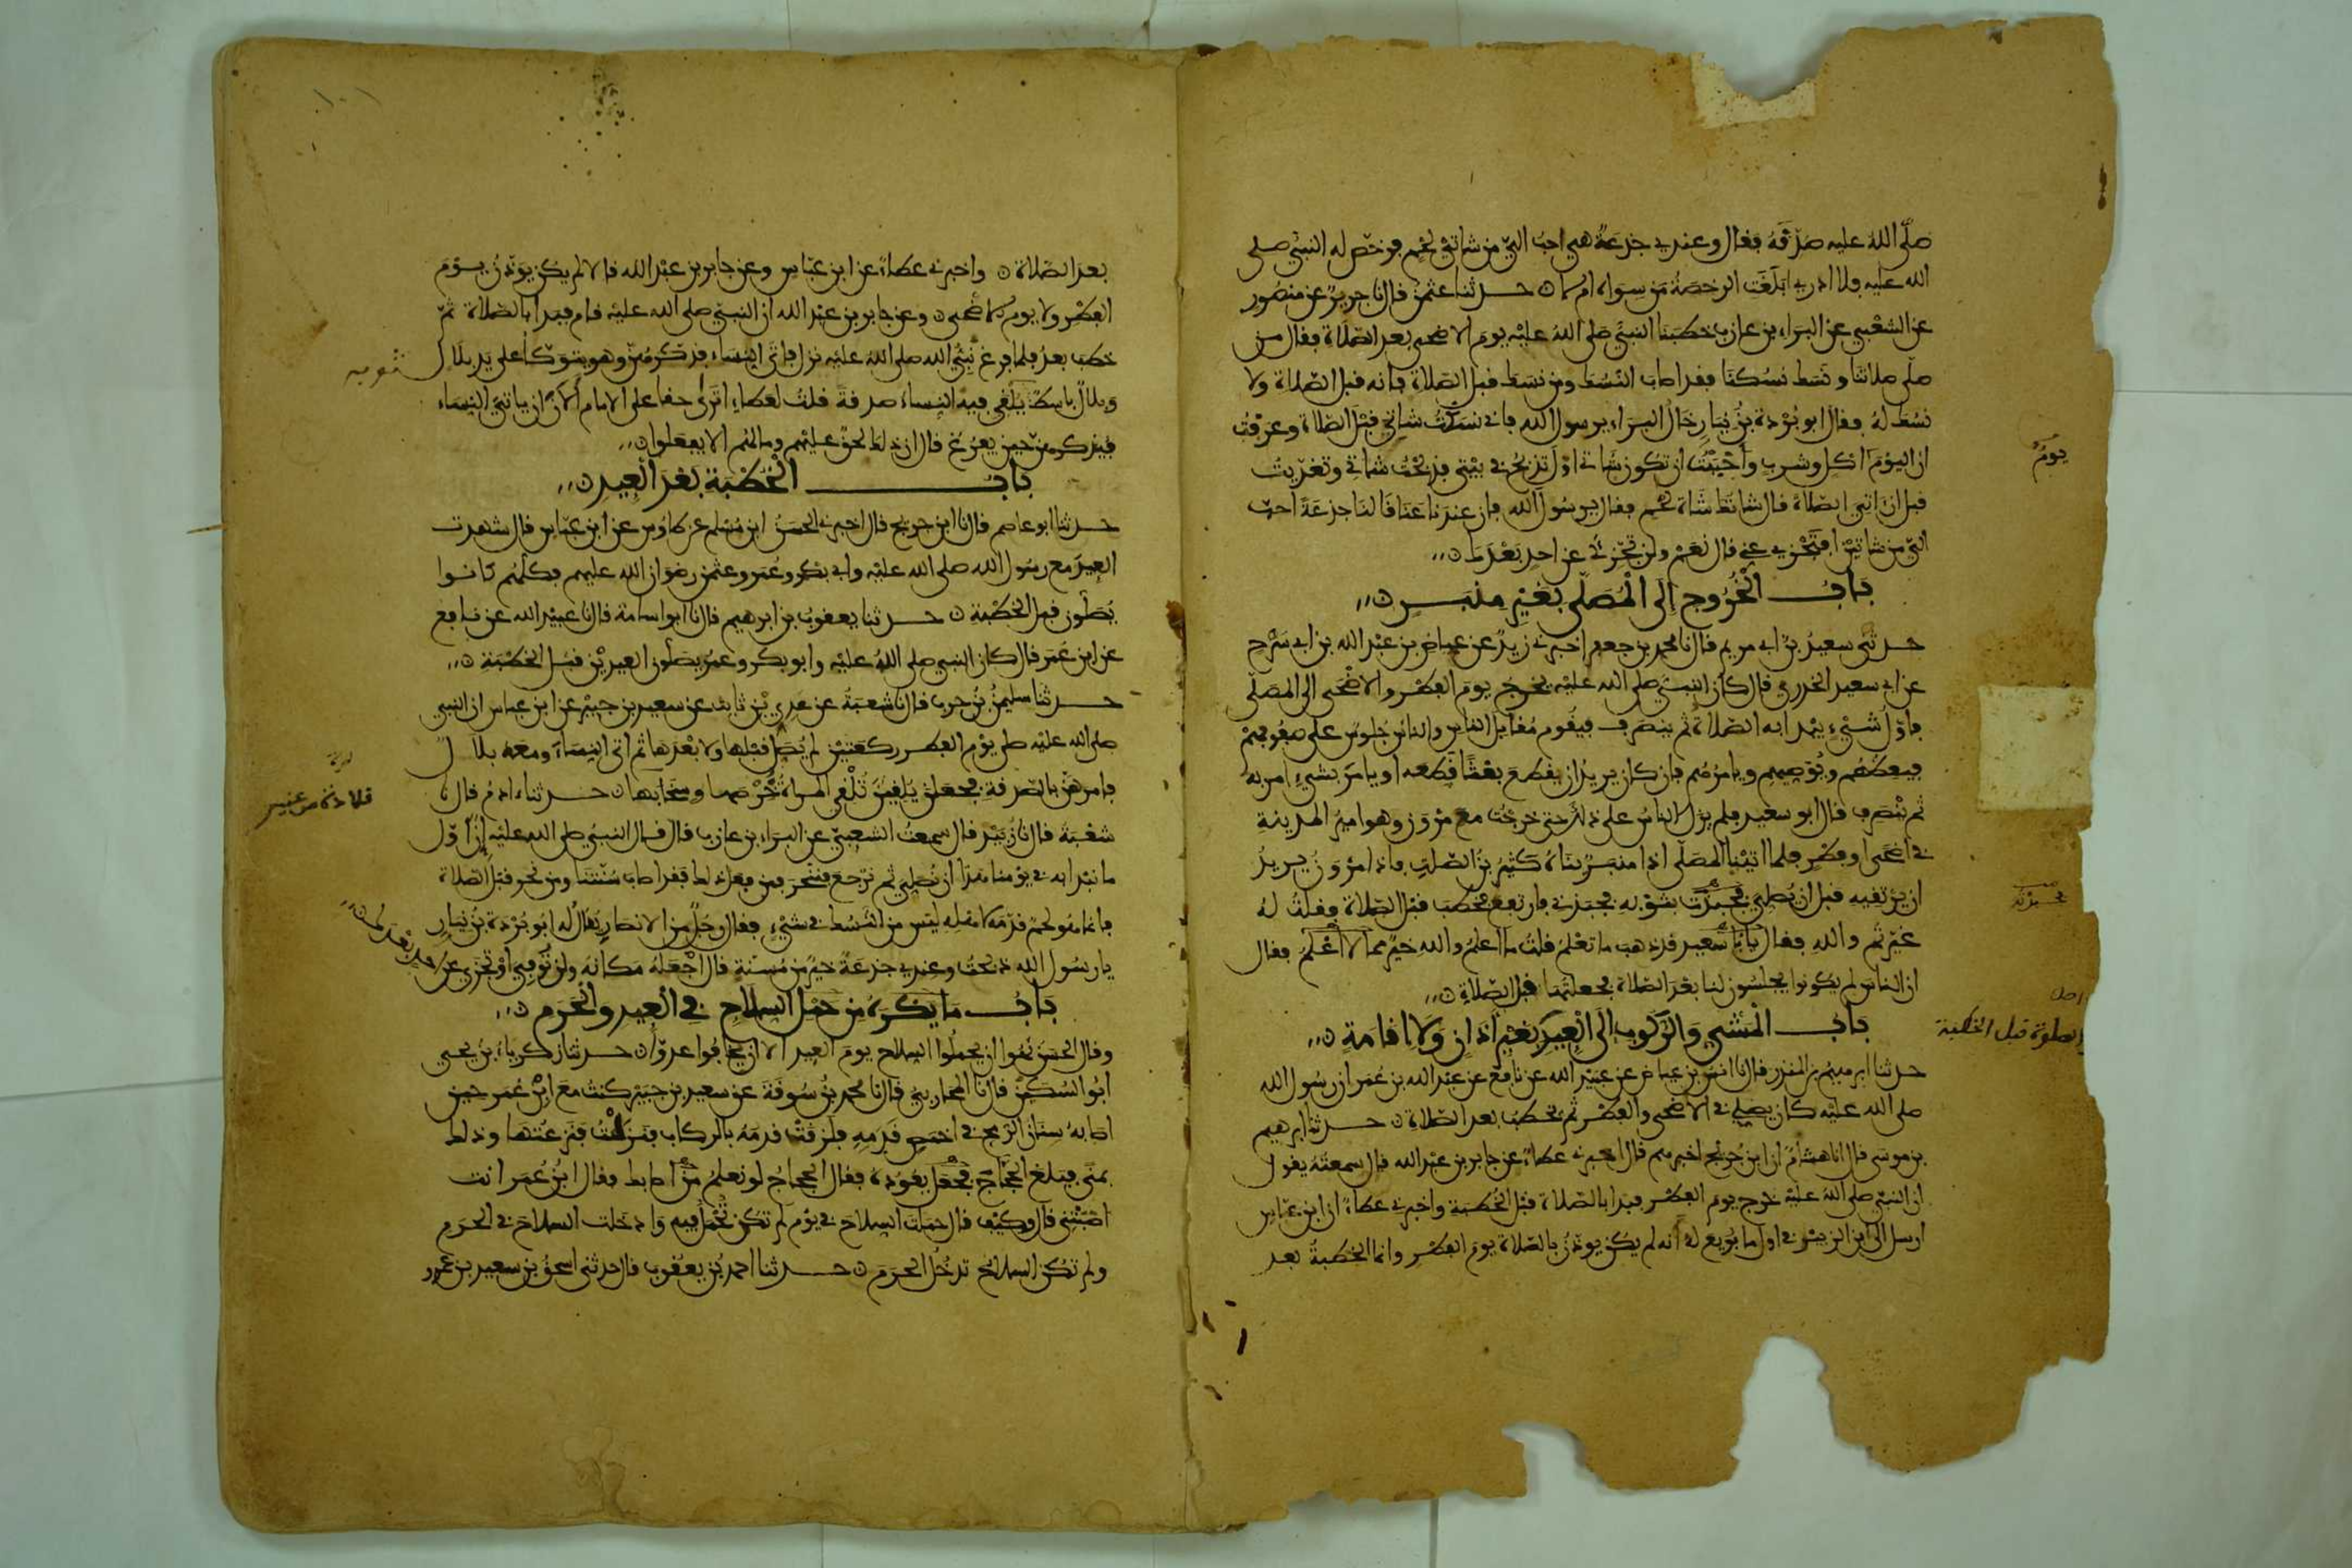 صلى الله عليه صدقه فقال وعندي جذعة هي احب الي من شاتي لحم فرخص له النبي صلى
الله عليه فلا ادري ابلغت الرخصة من سواه ام لا ن حدثنا عثمن قال نا جرير عن منصور
عن الشعبي عن البراء بن عازب خطبنا النبي صلى الله عليه يوم الاضحى بعد الصلاة فقال من
صلى صلاتنا ونسك نسكنا فقد اصاب النسك ومن نسك قبل الصلاة فانه قبل الصلاة ولا
نسك له فقال ابو بردة بن نيار خال البراء يرسول الله فاني نسكت شاتي قبل الصلاة وعرفت
يوم
ان اليوم اكل وشرب واحببت ان تكون شاتي اول تذبح في بيتي فذبحت شاتي وتغديت
قبل ان اتي الصلاة قال شاتك شاة لحم فقال يرسول الله فان عندنا عناقا لنا جذعة احب
الي من شاتين افتجزي عني قال نعم ولن تجزي عن احد بعدك ن
باب الخروج الى المصلى بغير منبر ن
حدثني سعيد بن ابي مريم قال نا محمد بن جعفر اخبرني زيد عن عياض بن عبد الله بن ابي سرح
عن ابي سعيد الخدري قال كان النبي صلى الله عليه يخرج يوم الفطر والاضحى الى المصلى
فاول شيء يبدا به الصلاة ثم ينصرف فيقوم مقابل الناس والناس جلوس على صفوفهم
فيعظهم ويوصيهم ويامرهم فان كان يريد ان يقطع بعثا قطعه او يامر بشيء امر به
ثم ينصرف قال ابو سعيد فلم يزل الناس على ذلك حتى خرجت مع مروان وهو امير المدينة
في اضحى او فطر فلما اتينا المصلى اذا منبر بناه كثير بن الصلت فاذا مروان يريد
ان يرتقيه قبل ان يصلي فجبذت بثوبه فجبذني فارتفع فخطب قبل الصلاة فقلت له
فجبذته
غيرتم والله فقال يابا سعيد قد ذهب ما تعلم قلت ما اعلم والله خير مما لا اعلم فقال
ان الناس لم يكونوا يجلسون لنا بعد الصلاة فجعلتها قبل الصلاة ن
باب المشي والركوب الى العيد بغير اذان ولا اقامة ن
والصلوة قبل الخطبة
حدثنا ابرهيم بن المنذر قال نا انس بن عياض عن عبيد الله عن نافع عن عبد الله بن عمر ان رسول الله
صلى الله عليه كان يصلي في الاضحى والفطر ثم يخطب بعد الصلاة ن حدثنا ابرهيم
بن موسى قال انا هشام ان ابن جريج اخبرهم قال اخبرني عطاء عن جابر بن عبد الله قال سمعته يقول
ان النبي صلى الله عليه خرج يوم الفطر فبدا بالصلاة قبل الخطبة واخبرني عطاء ان ابن عباس
ارسل الى ابن الزبير في اول ما بويع له انه لم يكن يوذن بالصلاة يوم الفطر وانما الخطبة بعد
بعد الصلاة ن واخبرني عطاء عن ابن عباس وعن جابر بن عبد الله قالا لم يكن يوذن يوم
الفطر ولا يوم الاضحى ن وعن جابر بن عبد الله ان النبي صلى الله عليه قام فبدا بالصلاة ثم
خطب بعد فلما فرغ نبي الله صلى الله عليه نزل فاتى النساء فذكرهن وهو يتوكا على يد بلال
ثوبه
وبلال باسط يلقي فيه النساء صدقة قلت لعطاء اترى حقا على الامام الان ان ياتي النساء
فيذكرهن حين يفرغ قال ان ذلك لحق عليهم وما لهم الا يفعلوا ن
باب الخطبة بعد العيد ن
حدثنا ابو عاصم قال نا ابن جريج قال اخبرني الحسن ابن مسلم عن طاوس عن ابن عباس قال شهدت
العيد مع رسول الله صلى الله عليه وابي بكر وعمر وعثمن رضوان الله عليهم فكلهم كانوا
يصلون قبل الخطبة ن حدثنا يعقوب بن ابرهيم قال نا ابو اسامة قال نا عبيد الله عن نافع
عن ابن عمر قال كان النبي صلى الله عليه وابو بكر وعمر يصلون العيدين قبل الخطبة ن
حدثنا سليمن بن حرب قال نا شعبة عن عدي بن ثابت عن سعيد بن جبير عن ابن عباس ان النبي
صلى الله عليه صلى يوم الفطر ركعتين لم يصل قبلها ولا بعدها ثم اتى النساء ومعه بلال
فامرهن بالصدقة فجعلن يلقين تلقي المراة خرصها وسخابها ن حدثنا ادم قال نا
قلادة من عنبر
شعبة قال نا زبيد قال سمعت الشعبي عن البراء بن عازب قال قال النبي صلى الله عليه ان اول
ما نبدا به في يومنا هذا ان نصلي ثم نرجع فننحر فمن فعل ذلك فقد اصاب سنتنا ومن نحر قبل الصلاة
فانما هو لحم قدمه لاهله ليس من النسك في شيء فقال رجل من الانصار يقال له ابو بردة بن نيار
يا رسول الله ذبحت وعندي جذعة خير من مسنة قال اجعله مكانه ولن توفي او تجزي عن احد بعدك ن
باب ما يكره من حمل السلاح في العيد والحرم ن
وقال الحسن نهوا ان يحملوا السلاح يوم العيد الا ان يخافوا عدوا ن حدثنا زكرياء بن يحيى
ابو السكين قال نا المحاربي قال نا محمد بن سوقة عن سعيد بن جبير كنت مع ابن عمر حين
اصابه سنان الرمح في اخمص قدمه فلزقت قدمه بالركاب فنزلت فنزعتها وذلك
بمنى فبلغ الحجاج فجعل يعوده فقال الحجاج لو نعلم من اصابك فقال ابن عمر انت
اصبتني قال وكيف قال حملت السلاح في يوم لم تكن تحمل فيه وادخلت السلاح في الحرم
ولم تكن السلاح تدخل الحرم ن حدثنا احمد بن يعقوب قال حدثني اسحق بن سعيد بن عمرو